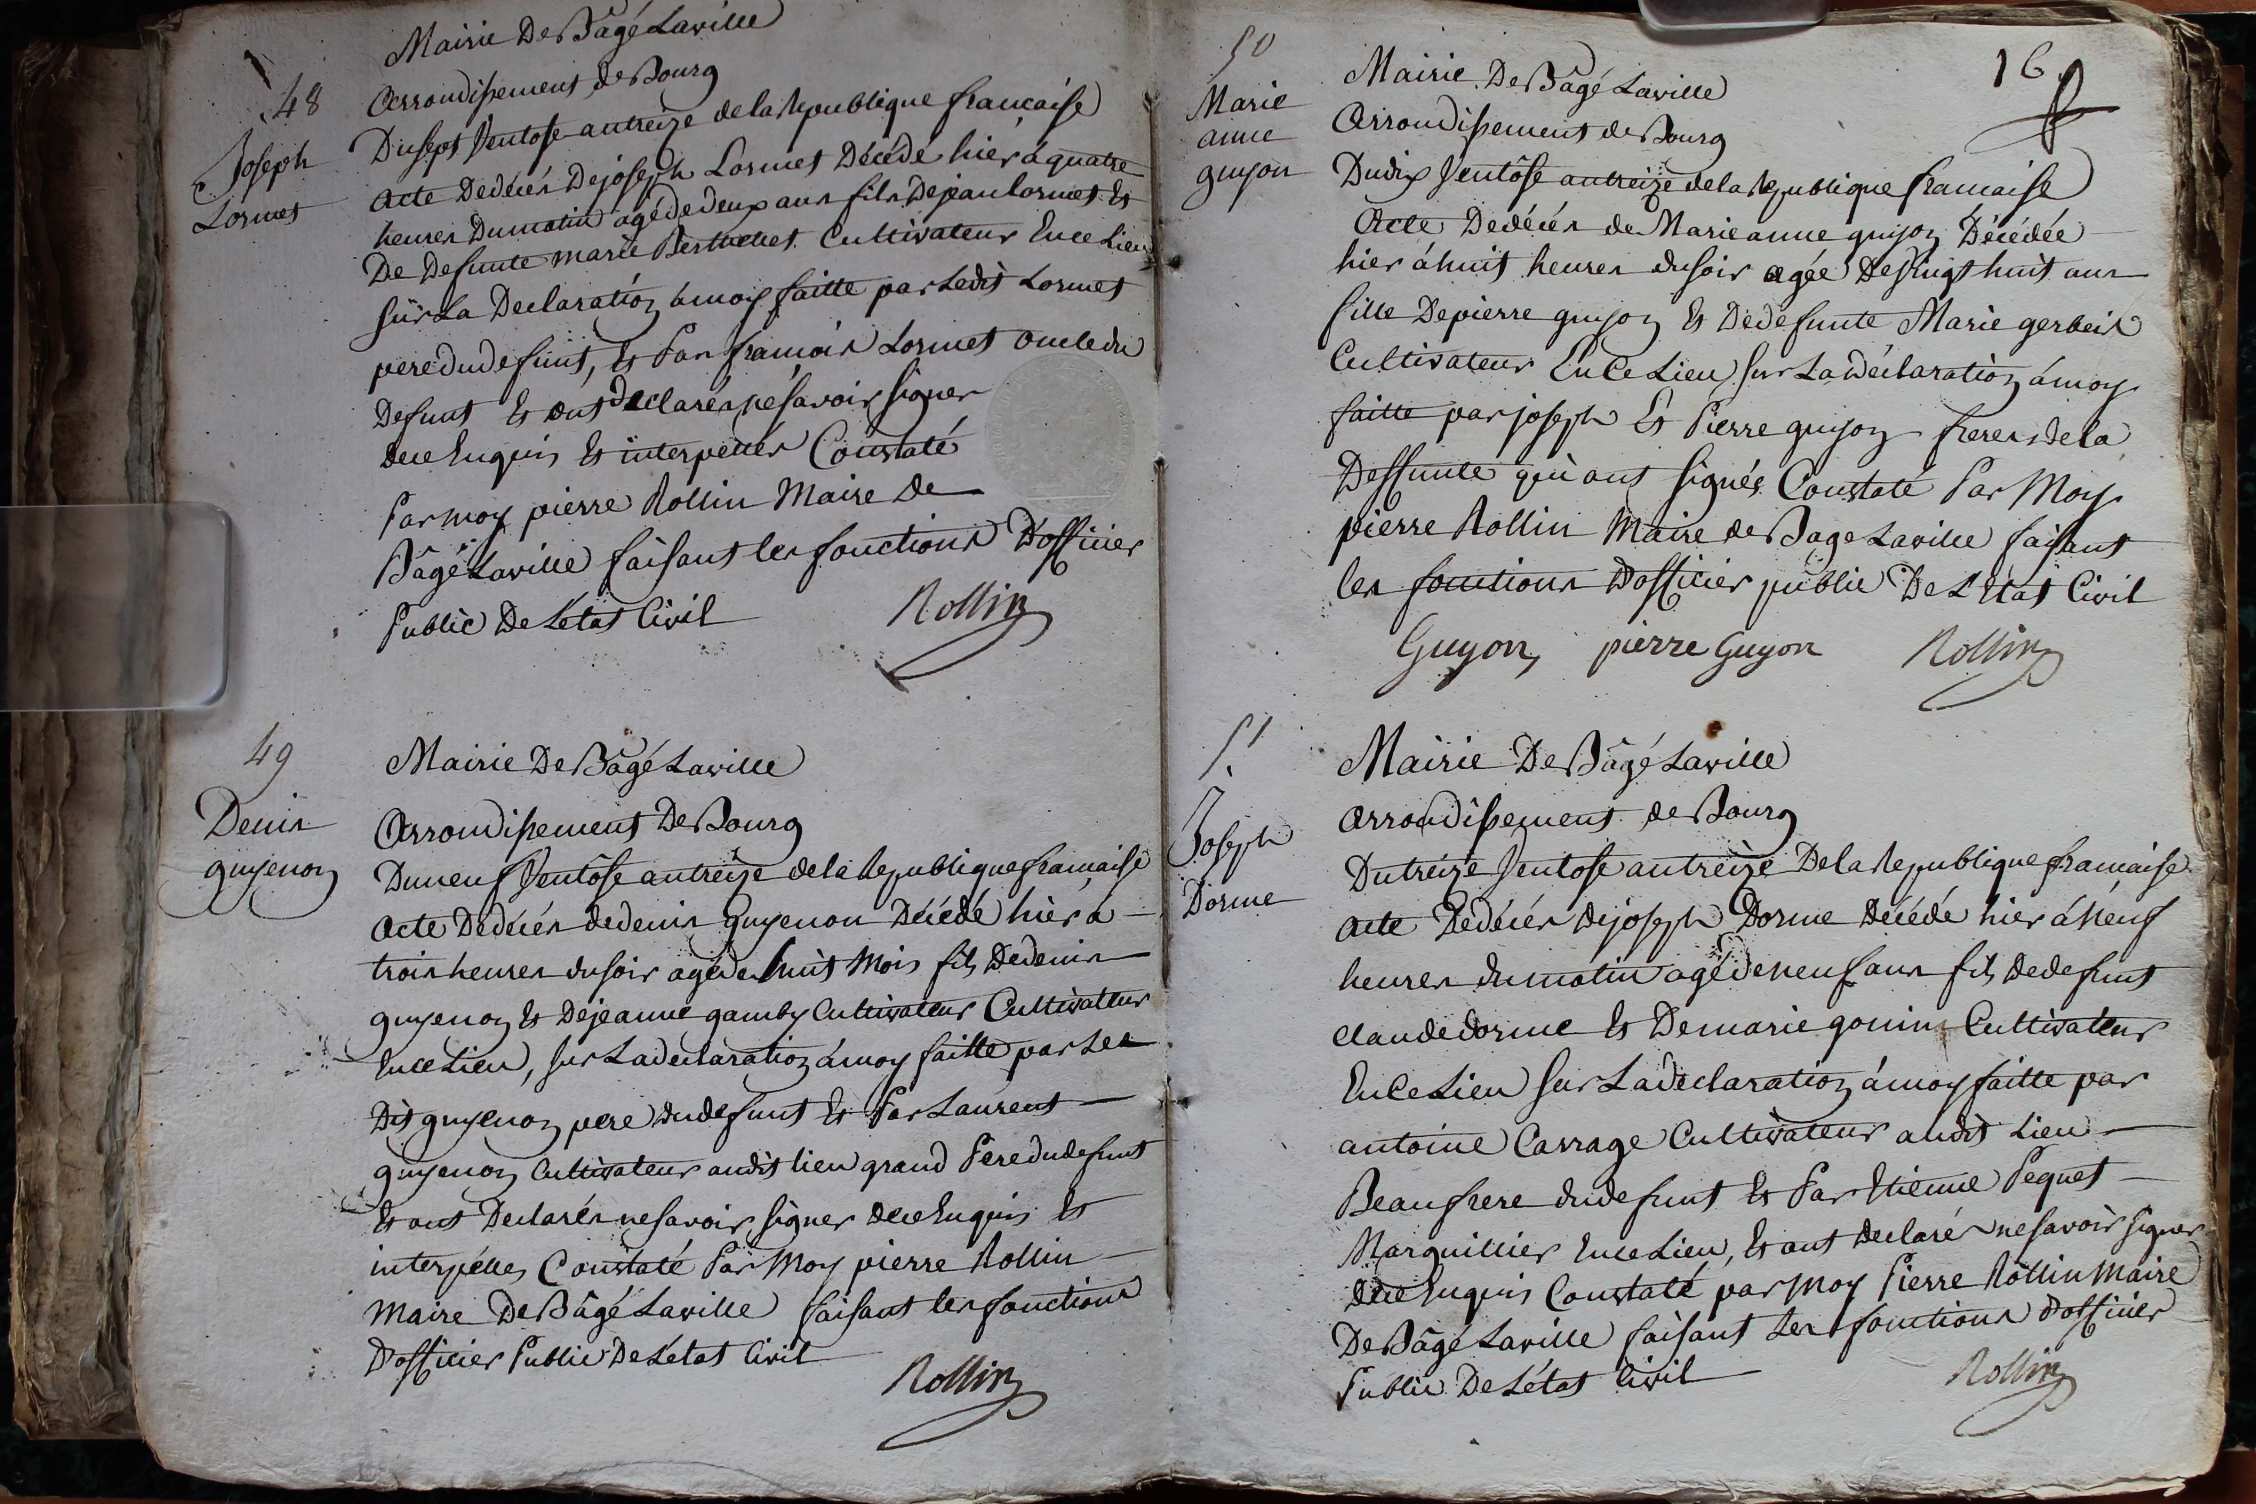 Mairie De Bâgé Laville
48
Arrondissement de Bourg
Joseph
Lormet
Du sept Ventose an treize de la Republique francaise
Acte De décés De joséph Lormet Décédé hier à quatre
heures Du matin agé de deux ans fils De jean Lormet Et
De Defunte marie Berthelet Cultivateur En ce Lieu
sur La Declaration à moy faitte par Ledit Lormet
pere du defunt, Et Par françois Lormet oncle du
Defunt Et ont declarés ne savoir signer
de ce Enquis Et interpellés Constaté
Par moy pierre Rollin Maire De
Bâgé Laville faisant les fonctions D'officier
Public De L'état Civil
Rollin
49
Denis
guyenon
Mairie De Bâgé Laville
Arrondissement De Bourg
Du neuf Ventôse an treize de la Republique francaise
Acte De décés de denis guyenon Décédé hier à
trois heures du soir agé de huit Mois fils De denis
guyenon Et De jeanne gamby Cultivateur Cultivateur
En ce Lieu, sur La declaration à moy faitte par Le
Dit guyenon pere du defunt Et Par Laurent
guyenon Cultivateur audit lieu grand Pere du defunt
Et ont Declarés ne savoir signer de ce Enquis Et
interpélles Constaté Par Moy pierre Rollin
Maire De Bâgé Laville faisant les fonctions
D'officier Public De L'état Civil
Rollin
50
Marie
anne
guyon
16
Mairie De Bâgé Laville
Arrondissement de Bourg
Du dix Ventôse an treize de la Republique francaise
Acte De décés de Marie anne guyon Décédée
hier à huit heures du soir agée De Vingt huit ans
fille De pierre guyon Et De defunte Marie gerbeil
Cultivateur En Ce Lieu sur La déclaration à moy
faitte par joseph Et Pierre guyon freres de la
Deffunte qui ont signés Constaté Par Moy
pierre Rollin Maire de Bage Laville faisant
les fonctions D'officier public De L'Etat Civil
Guyon, pierre Guyon Rollin
51
Joseph
Dorme
Mairie De Bâgé Laville
Arrondissement de Bourg
Du treize Ventose an treize De la Republique francaise
Acte De décés De joseph Dorme Décédé hier à Neuf
heures du matin agé de neuf ans fils De defunt
claude dorme Et De marie gonin Cultivateur
En Ce Lieu sur La declaration à moy faitte par
antoine Carrage Cultivateur audit Lieu
Beaufrere du defunt Et Par Etienne Pequet
Marguillier En ce Lieu, Et ont declaré ne savoir signer
de ce Enquis Constaté par Moy Pierre Rollin Maire
De Bâgé Laville faisant Les fonctions D'officier
Public De L'état Civil
Rollin